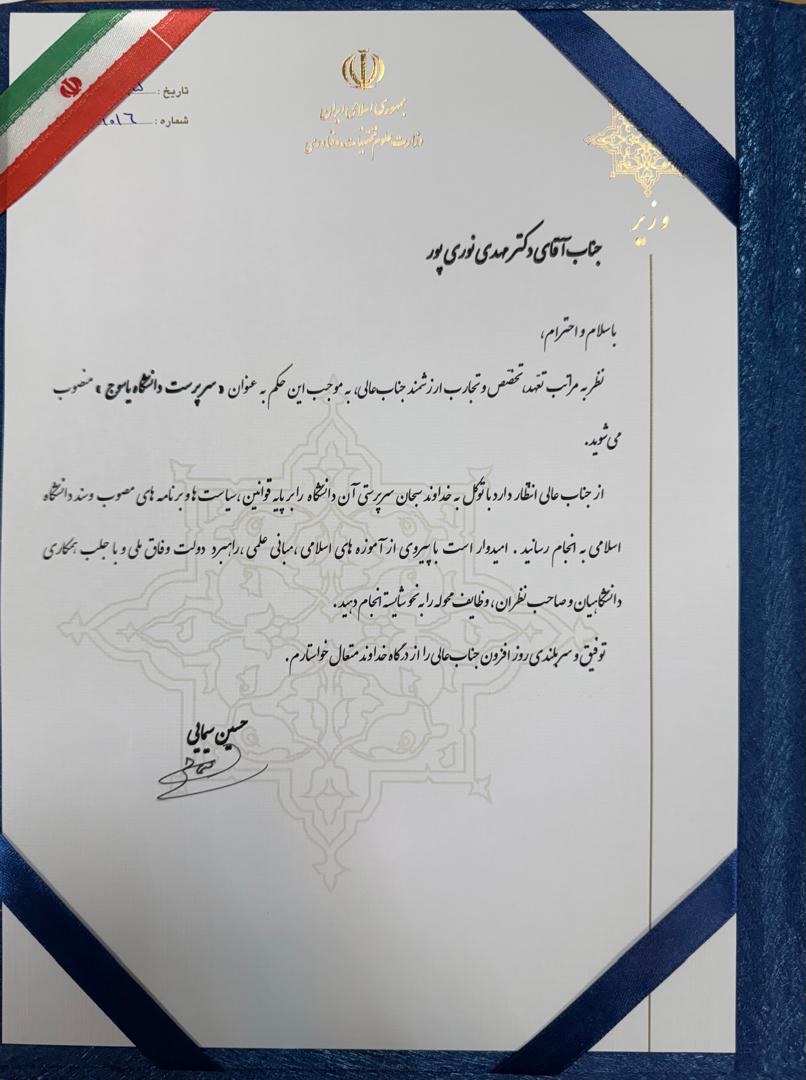 جمهوری اسلامی ایران
وزارت علوم تحقیقات و فناوری
تاریخ :
شماره :
وزیر
جناب آقای دکتر مهدی نوری پور
باسلام و احترام،
نظر به مراتب تعهد، تخصص و تجارب ارزشمند جناب‌عالی، به موجب این حکم به عنوان «سرپرست دانشگاه یاسوج» منصوب
می‌شوید.
از جناب عالی انتظار دارد با توکل به خداوند سبحان سرپرستی آن دانشگاه را بر پایه قوانین، سیاست ها و برنامه های مصوب و سند دانشگاه
اسلامی به انجام رسانید . امیدوار است با پیروی از آموزه های اسلامی ، مبانی علمی ، راهبرد دولت وفاق ملی و با جلب همکاری
دانشگاهیان و صاحب نظران، وظایف محوله را به نحو شایسته انجام دهید.
توفیق و سربلندی روز افزون جناب‌عالی را از درگاه خداوند متعال خواستارم.
حسین سیمایی